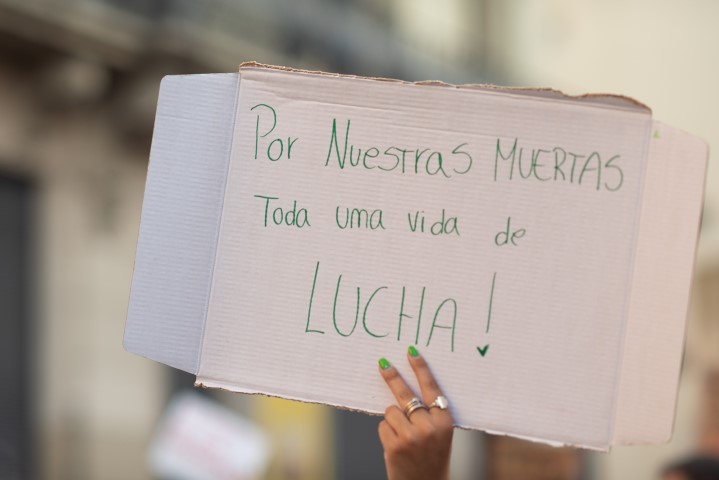 Por Nuestras MUERTAS
Toda uma vida de
LUCHA!